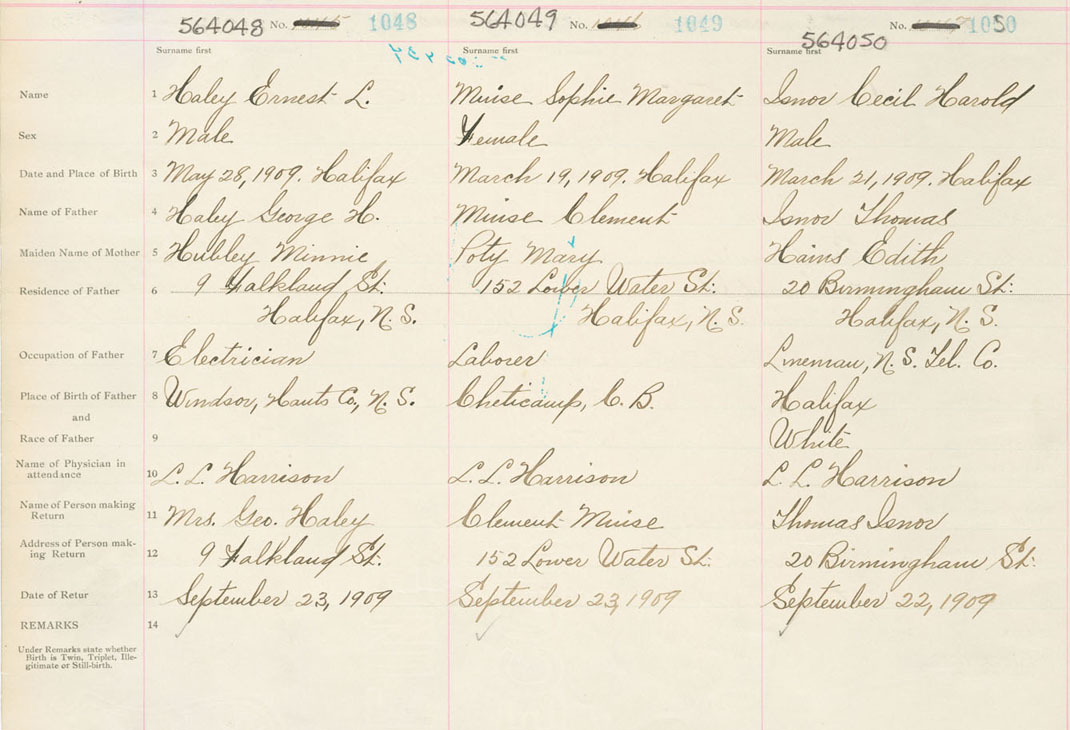 564048 No. 1048 564049 No. 1049 No. 1050
564050
Surname first Surname first Surname first
Name 1 Haley Ernest L. Muise Sophie Margaret Isnor Cecil Harold
Sex 2 Male Female Male
Date and Place of Birth 3 May 28, 1909. Halifax March 19, 1909. Halifax March 21, 1909. Halifax
Name of Father 4 Haley George H. Muise Clement Isnor Thomas
Maiden Name of Mother 5 Hubley Minnie Poty Mary Hains Edith
Residence of Father 6 9 Falkland St. 152 Lower Water St. 20 Birmingham St.
Halifax, N.S. Halifax, N.S. Halifax, N.S.
Occupation of Father 7 Electrician Laborer Lineman, N.S. Tel. Co.
Place of Birth of Father 8 Windsor, Hants Co., N.S. Cheticamp, C.B. Halifax
and
Race of Father 9 White
Name of Physician in
attendance 10 L. L. Harrison L. L. Harrison L. L. Harrison
Name of Person making
Return 11 Mrs. Geo. Haley Clement Muise Thomas Isnor
Address of Person mak-
ing Return 12 9 Falkland St. 152 Lower Water St. 20 Birmingham St.
Date of Retur 13 September 23, 1909 September 23, 1909 September 22, 1909
REMARKS 14
Under Remarks state whether
Birth is Twin, Triplet, Ille-
gitimate or Still-birth.